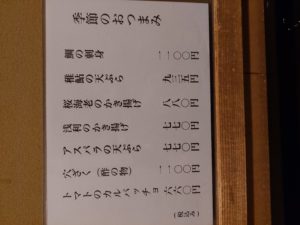 季節のおつまみ
鯛の刺身 一一〇〇円
稚鮎の天ぷら 九三五円
桜海老のかき揚げ 八八〇円
浅利のかき揚げ 七七〇円
アスパラの天ぷら 七七〇円
穴ざく（酢の物） 一一〇〇円
トマトのカルパッチョ 六六〇円
（税込み）